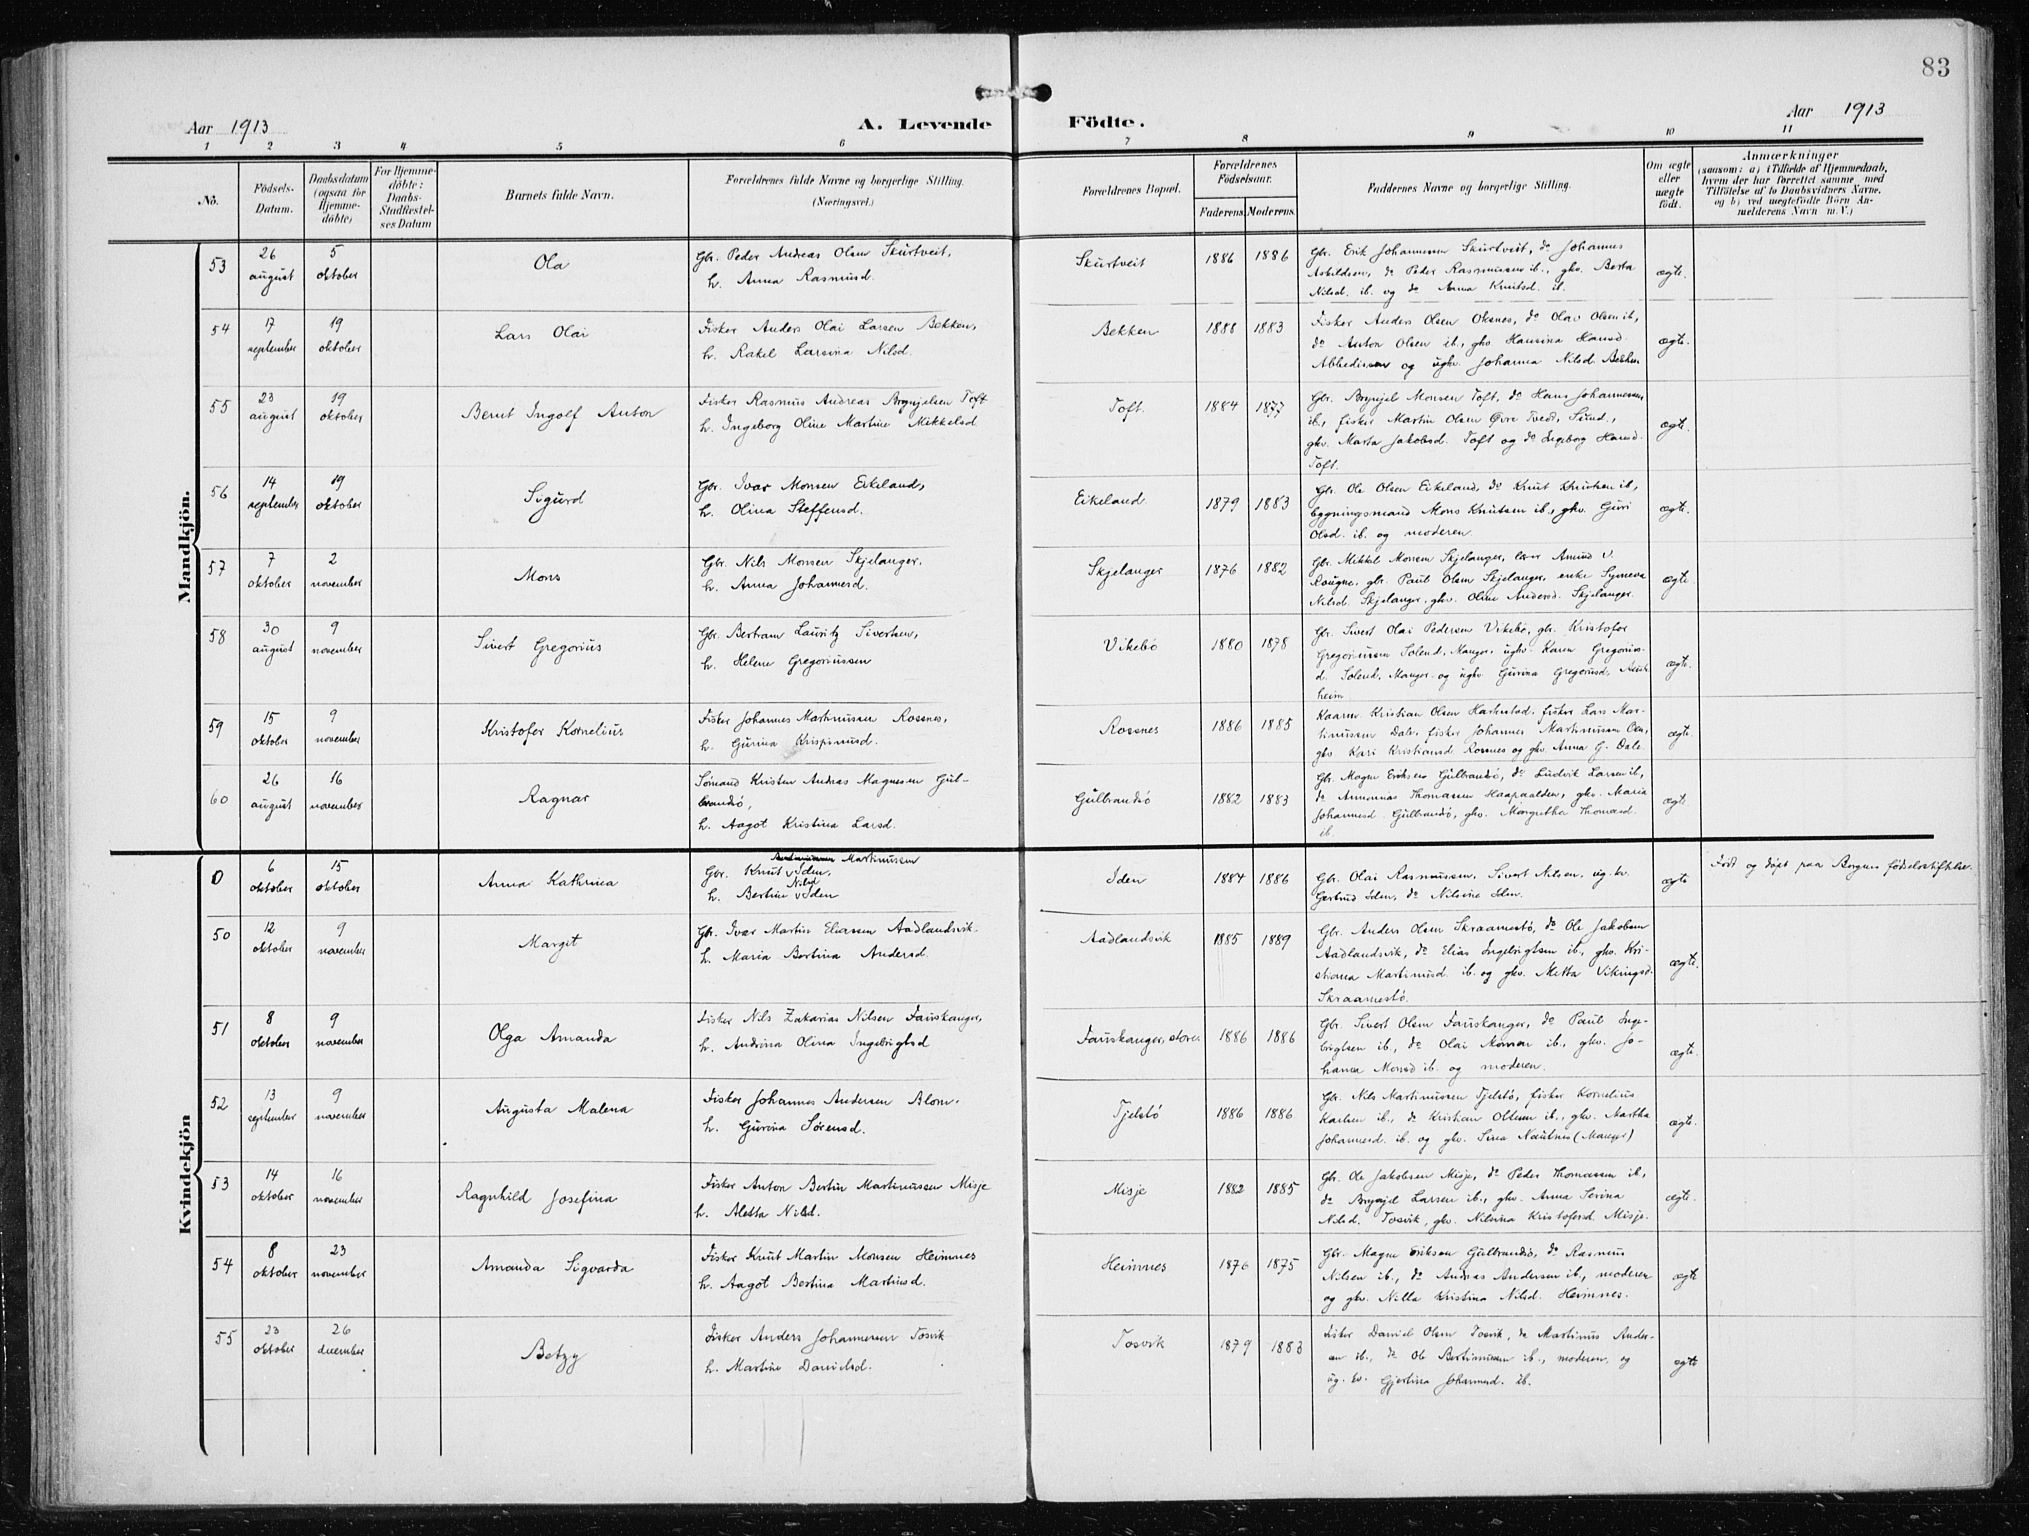 83
Aar 1913
A. Levende Födte.
Aar 1913
1 2 3 4 5 6 7 8 9 10 11
No.
Födsels-Datum.
Daabsdatum (ogsaa for Hjemme-döbte)
For Hjemme-döbte: Daabs-Stadfæstel-ses Datum
Barnets fulde Navn.
Forældrenes fulde Navne og borgerlige Stilling.
(Næringsvei.)
Forældrenes Bopæl.
Forældrenes Födselsaar.
Faderens. Moderens.
Faddernes Navne og borgerlige Stilling.
Om ægte eller uægte födt.
Anmærkninger
(saasom: a) i Tilfælde af Hjemmedaab, hvem der har forrettet samme med Tilföielse af to Daabsvidners Navne, og b) ved uægtefödte Börn An-melderens Navn m. V.)
Mandkjön.
53 26 august 5 oktober Ola
Gbr. Peder Andreas Olsen Skurtveit,
h. Anna Rasmusd.
Skurtveit 1886 1886
Gbr. Erik Johannessen Skurtveit, do Johannes
Askildsen, do Peder Rasmussen ib., gkv. Berta
Nilsd. ib. og do Anna Knutsd. ib.
ægte.
54 17 september 19 oktober Lars Olai
Fisker Anders Olai Larsen Bekken,
h. Rakel Larsina Nilsd.
Bekken 1888 1883
Fisker Anders Olsen Oksnes, do Olav Olsen ib,
do Anton Olsen ib., gkv Hansina Hansd.
Abbedissen og ugkv. Johanna Nilsd. Bekken
ægte.
55 23 august 19 oktober Bernt Ingolf Anton
Fisker Rasmus Andreas Brynjelsen Toft
h. Ingeborg Oline Martine Mikkelsd
Toft. 1884 1877
Gbr. Brynjel Monsen Toft, do Hans Johannessen
ib., fisker Martin Olsen Øvre Tvedt, Sund.,
gkv. Marta Jakobsd. Toft og do Ingeborg Hansd.
Toft.
ægte.
56 14 september 19 oktober Sigurd
Gbr. Ivar Monsen Eikeland,
h. Olina Steffensd.
Eikeland 1879 1883
Gbr. Ole Olsen Eikeland, do Knut Knutsen ib,
bygningsmand Mons Knutsen ib., gkv. Guri
Olsd. ib. og moderen.
ægte.
57 7 oktober 2 november Mons
Gbr. Nils Monsen Skjelanger,
h. Anna Johannesd.
Skjelanger 1876 1882
Gbr. Mikkel Monsen Skjelanger, lærer Amund V.
Rougne, gbr. Paul Olsen Skjelanger, enke Synneva
Nilsd. Skjelanger, gkv. Oline Andersd. Skjelanger.
ægte.
58 30 august 9 november Sivert Gregorius
Gbr. Bertram Lauritz Sivertsen,
h. Helene Gregoriussen
Vikebö 1880 1878
Gbr. Sivert Olai Pedersen Vikebö, gbr. Kristofer
Gregoriussen Solend, Manger, ugkv. Karen Gregorius-
d. Solend, Manger og ugkv. Gurina Gregoriusd,
heim
ægte.
59 15 oktober 9 november Kristofer Kornelius
Fisker Johannes Martinussen Rossnes,
h. Gurina Krispinusd.
Rossnes 1886 1885
Kaaren Kristian Olsen Harkestad, fisker Lars Mar-
tinussen Dale, fisker Johannes Martinussen
gkv Kari Kristiansd. Rossnes og gkv. Anna G. Dale.
ægte.
60 26 august 16 november Ragnar
Sømand Kristen Andreas Magnesen Gul-
brandsö,
h. Aagot Kristina Larsd.
Gulbrandsö 1882 1883
Gbr. Magne Eriksen Gulbrandsö, do Ludvik Larsen ib,
do Annanias Thomassen, gkv. Maria
Johannesd. Gulbrandsö, gkv. Margretha Thomasd.
ib.
ægte.
Kvindekjön
0 6 oktober 15 oktober Anna Kathrina
Martinussen
Gbr. Knut Iden,
Nilsd
h. Bertine Iden
Iden 1884 1886
Gbr. Olai Rasmussen, Sivert Nilsen, ug. kv.
Gertrud Iden, do Nilsine Iden.
ægte
Født og døpt paa Bergens fødselsstiftelse.
50 12 oktober 9 november Margit
Gbr. Ivar Martin Eliassen Aadlandsvik
h. Maria Bertina Andersd.
Aadlandsvik 1885 1889
Gbr. Anders Olsen Skraamestö, do Ole Jakobsen
Aadlandsvik, do Elias Ingebrigtsen ib., gkv. Kri-
stiana Martinusd. ib. og gkv. Metta Vikingsd.
Skraamestö.
ægte.
51 8 oktober 9 november Olga Amanda
Fisker Nils Zakarias Nilsen Fauskanger,
h. Andrina Olina Ingebrigtsd
Fauskanger, store. 1886 1886
Gbr. Sivert Olsen Fauskanger, do Paul Inge-
brigtsen ib, do Olai Monsen ib., gkv. Jo-
hanna Monsd ib. og moderen.
ægte.
52 13 september 9 november Augusta Malena
Fisker Johannes Andersen Blom.
h. Gurina Sørensd.
Tjelstö 1886 1886
Gbr. Nils Martinussen Tjelstö, fisker Kornelius
Karlsen ib., do Kristian Oltsen ib., gkv. Martha
Johannesd. ib. og gkv. Sina Nautnes (Manger)
ægte.
53 14 oktober 16 november Ragnhild Josefina
Fisker Anton Bertin Martinussen Misje
h. Aletta Nilsd.
Misje 1882 1885
Gbr. Ole Jakobsen Misje, do Peder Thomassen ib,
do Brynjel Larsen ib., gkv. Anna Serina
Nilsd. Tosvik, gkv. Nilsina Kristofersd. Misje.
ægte.
54 8 oktober 23 november Amanda Sigvarda
Fisker Knut Martin Monsen Heimnes
h. Aagot Bertina Martinsd.
Heimnes 1876 1875
Gbr. Magne Eriksen Gulbrandsö, do Rasmus
Nilsen ib., do Andreas Andersen ib., moderen
og gkv. Nilla Kristina Nilsd. Heimnes.
ægte
55 23 oktober 26 december Betzy
Fisker Anders Johannessen Tosvik
h. Martine Danielsd.
Tosvik 1879 1883
Fisker Daniel Olsen Tosvik, do Martinus Ander-
sen ib., do Ole Bertinussen ib., moderen, og
ug. kv. Gjertina Johannesd. ib.
ægte